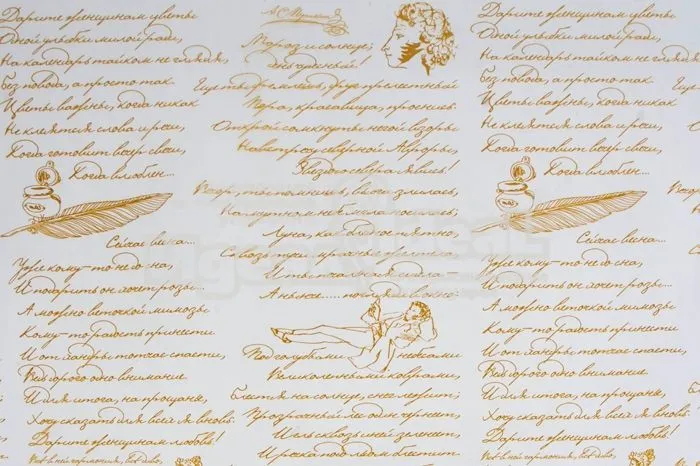 Дарите женщинам цветы
Одной улыбки милой ради,
На календарь тайком не глядя,
Без повода, а просто так
Цветы важны, когда никак
Не клеятся слова и речи,
Когда готовит вечер свечи,
Когда влюблен...
Сейчас весна...
Уже кому-то не до сна,
И подарить он хочет розы...
А можно веточкой мимозы
Кому-то радость принести
И от хандры тотчас спасти,
Ведь дорого одно внимание
И для итога, на прощанье,
Хочу сказать для всей я вновь:
Дарите женщинам любовь!
А.С.Пушкин
Мороз и солнце;
день чудесный!
Еще ты дремлешь, друг прелестный
Пора, красавица, проснись
Открой сомкнуты негой взоры
Навстречу северной Авроры,
Звездою севера явись!
Вечор, ты помнишь, вьюга злилась,
На мутном небе мгла носилась;
Луна, как бледное пятно,
Сквозь тучи мрачные желтела
И ты печальная сидела —
А нынче..... погляди в окно:
Под голубыми небесами
Великолепными коврами,
Блестя на солнце, снег лежит;
Прозрачный лес один чернеет,
И ель сквозь иней зеленеет,
И речка подо льдом блестит.
Дарите женщинам цветы
Одной улыбки милой ради,
На календарь тайком не глядя,
Без повода, а просто так
Цветы важны, когда никак
Не клеятся слова и речи,
Когда готовит вечер свечи,
Когда влюблен...
Сейчас весна...
Уже кому-то не до сна,
И подарить он хочет розы...
А можно веточкой мимозы
Кому-то радость принести
И от хандры тотчас спасти,
Ведь дорого одно внимание
И для итога, на прощанье,
Хочу сказать для всей я вновь:
Дарите женщинам любовь!